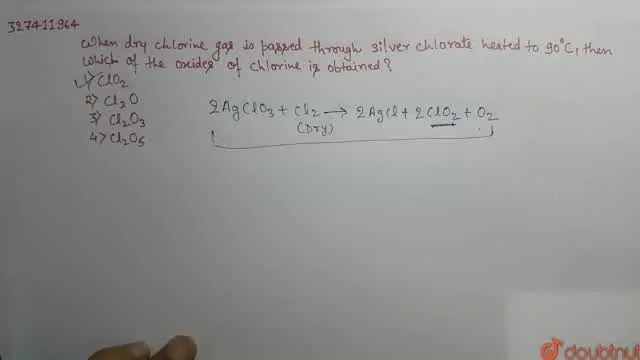 327411964
When dry chlorine gas is passed through silver chlorate heated to 90°C, then
which of the oxides of chlorine is obtained?
1) ClO2
2) Cl2O
3) Cl2O3
4) Cl2O5
2AgClO3 + Cl2 → 2AgCl + 2ClO2 + O2
(Dry)
doubtnut